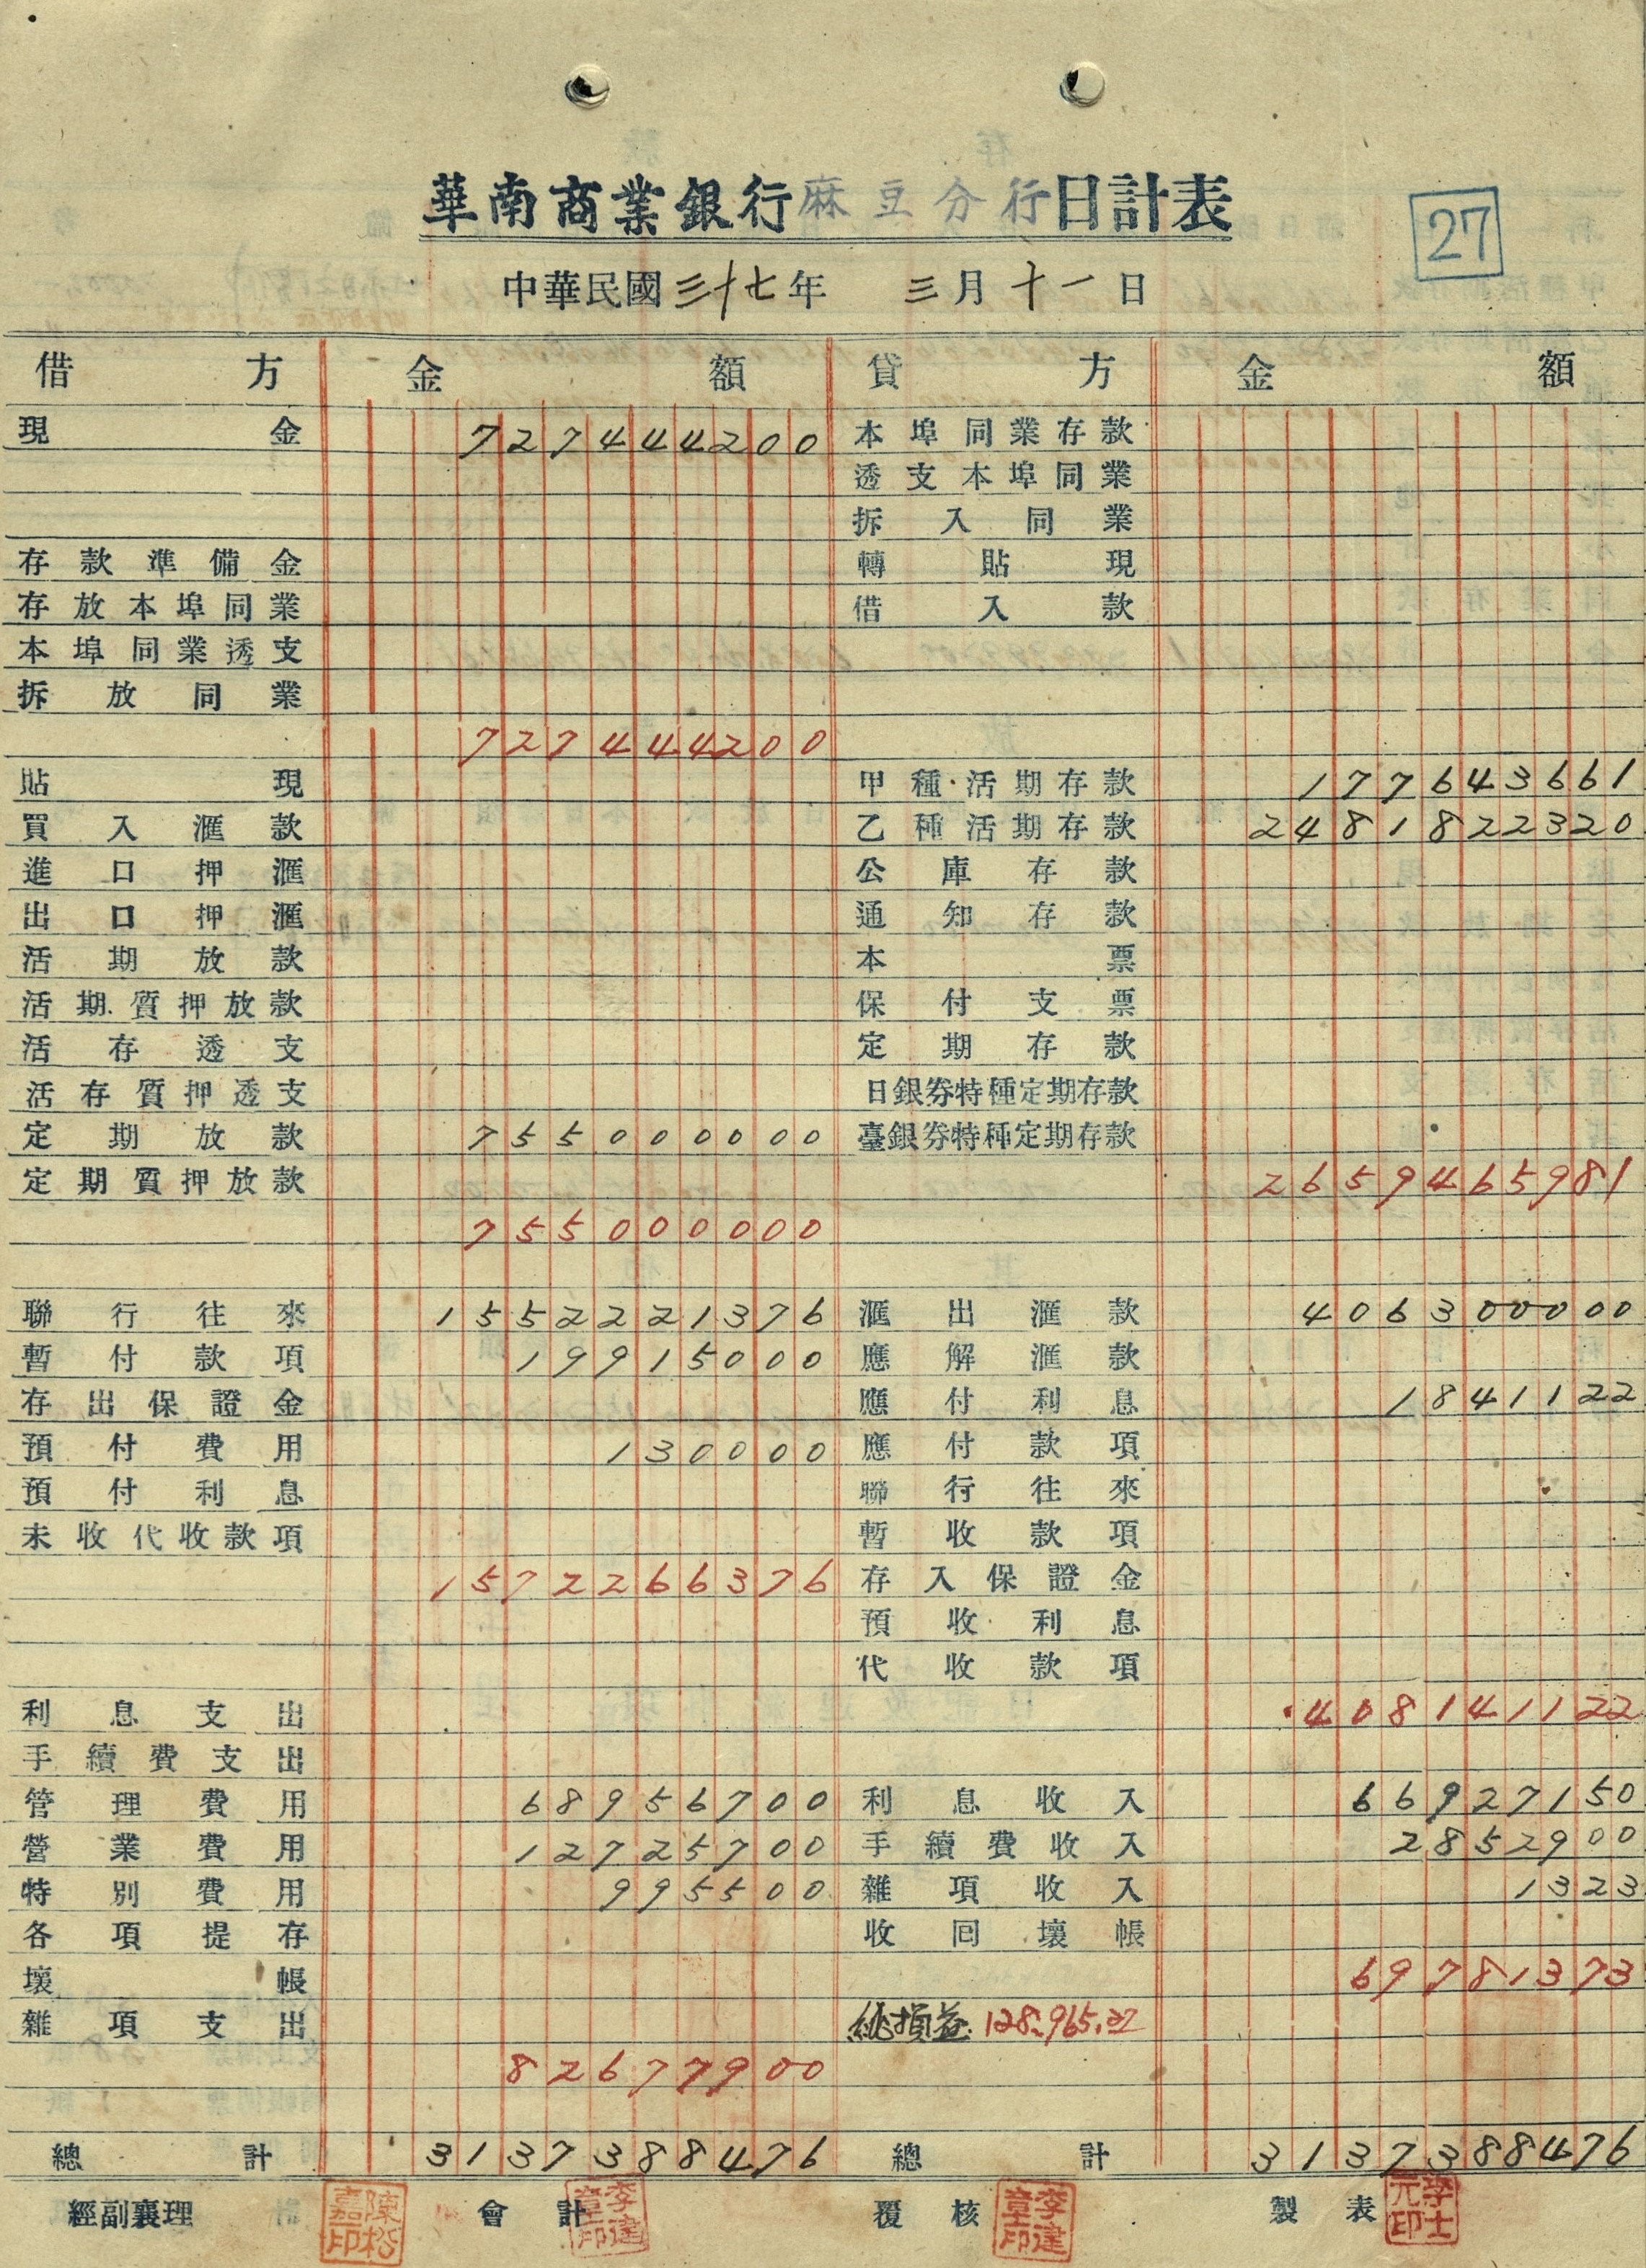 華南商業銀行麻豆分行日計表
27
中華民國三十七年 三月十一日
借方 金額 貸方 金額
現金 727444200 本埠同業存款
透支本埠同業
拆入同業
存款準備金 轉貼現
存放本埠同業 借入款
本埠同業透支
拆放同業
727444200
貼現 甲種活期存款 177643661
買入滙款 乙種活期存款 2481822320
進口押滙 公庫存款
出口押滙 通知存款
活期放款 本票
活期質押放款 保付支票
活存透支 定期存款
活存質押透支 日銀券特種定期存款
定期放款 755000000 臺銀券特種定期存款
定期質押放款 2659465981
755000000
聯行往來 1552221376 滙出滙款 406300000
暫付款項 19915000 應解滙款
存出保證金 應付利息 1841122
預付費用 130000 應付款項
預付利息 聯行往來
未收代收款項 暫收款項
1572266376 存入保證金
預收利息
代收款項
利息支出 408141122
手續費支出
管理費用 68956700 利息收入 66927150
營業費用 12725700 手續費收入 2852900
特別費用 995500 雜項收入 1323
各項提存 收回壞帳
壞帳 69781373
雜項支出 純損益 128,965.27
82677900
總計 3137388476 總計 3137388476
經副襄理 陳松嘉印 會計 李建章印 覆核 李建章印 製表 李士元印